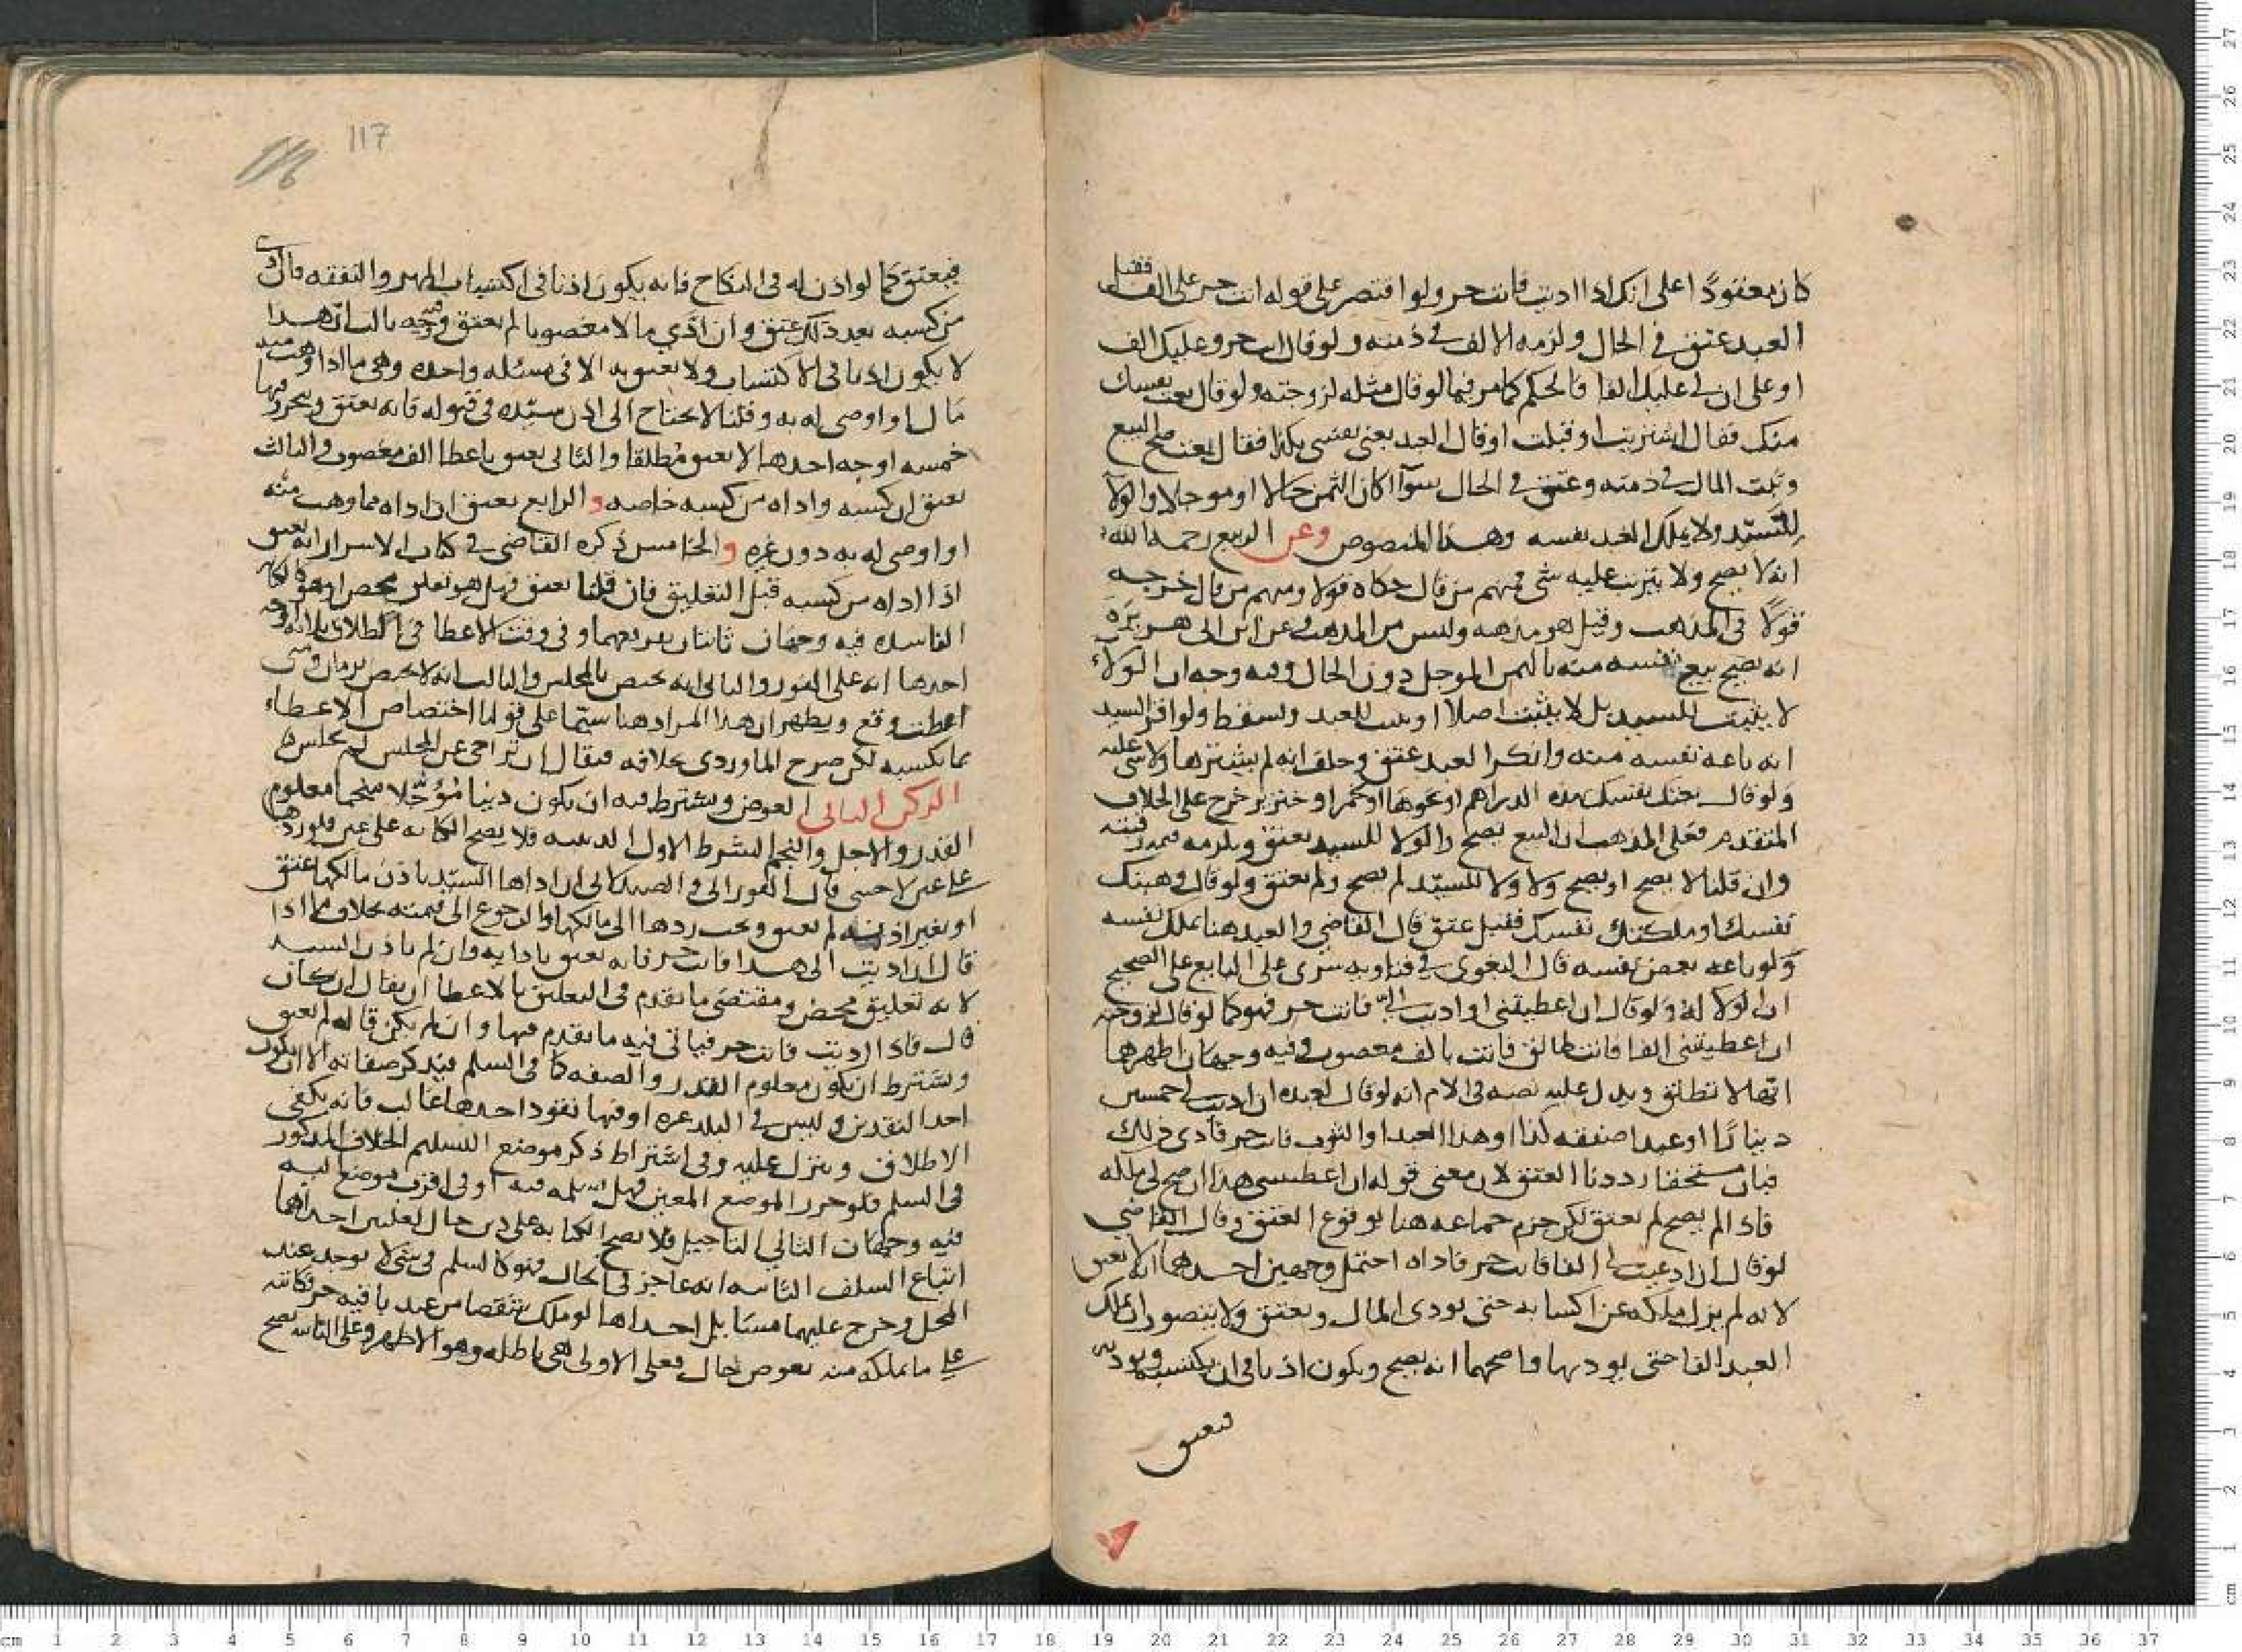 كان معقودا على انك اذا اديت فانت حر ولو اقتصر على قوله انت حر على الف فقبل
العبد عتق في الحال ولزمه الالف في ذمته ولو قال انت حر وعليك الف
او على ان لي عليك الفا فالحكم كما مر فيما لو قال مثله لزوجته ولو قال بعت نفسك
منك فقال اشتريت او قبلت او قال العبد بعني نفسي بكذا فقال بعت صح البيع
وثبت المال في ذمته وعتق في الحال سوآ اكان الثمن حالا او موجلا والولا
للسيد ولا يملك العبد نفسه وهذا المنصوص وعن الربيع رحمه الله
انه لا يصح ولا يترتب عليه شي فمنهم من قال حكاه قولا ومنهم من قال خرجه
قولا في المذهب وقيل هو مذهبه وليس من المذهب وعن ابن ابي هريرة
انه يصح بيع نفسه منه بالثمن الموجل دون الحال وفيه وجه ان الولاء
لا يثبت للسيد بل لا يثبت اصلا او يثبت للعبد ويسقط ولو اقر السيد
انه باعه نفسه منه وانكر العبد عتق وحلف انه لم يشترها ولا شي عليه
ولو قال بعتك نفسك بهذه الدراهم او نحوها او خمر او خنزير خرج على الخلاف
المتقدم فعلى المذهب ان البيع يصح والولا للسيد يعتق ويلزمه قيمة رقبته
وان قلنا لا يصح او يصح ولا ولا للسيد لم يصح ولم يعتق ولو قال وهبتك
نفسك او ملكتك نفسك فقبل عتق قال القاضي والعبد هنا يملك نفسه
ولو باعه بعض نفسه قال البغوي في فتاويه سرى على البايع على الصحيح
ان الولا له ولو قال ان اعطيتني او اديت الي فانت حر فهو كما لو قال لزوجته
ان اعطيتني الفا فانت طالق فاتت بالف مغصوب وفيه وجهان اظهرها
انها لا تطلق ويدل عليه نصه في الام انه لو قال لعبده ان اديت لي خمسين
دينارا او عبدا صفته كذا او هذا العبد او الثوب فانت حر فادى ذلك
فبان مستحقا رددنا العتق لان معنى قوله ان اعطيتني هذا ان صح لي ملكه
فاذا لم يصح لم يعتق لكن جزم جماعه هنا بوقوع العتق وقال القاضي
لو قال ان اديت لي الفا فانت حر فاداه احتمل وجهين احدهما انه لا يعتق
لانه لم يزل ملكه عن اكسابه حتى يودي المال ويعتق ولا يتصور ان يملك
العبد الفا حتى يوديها واصحهما انه يصح ويكون اذنا في ان يكتسب ويوديه
فيعتق
117
فيعتق كما لو اذن له في النكاح فانه يكون اذنا في اكتساب المهر والنفقه فان ادى
من كسبه بعد ذلك عتق وان ادي مالا مغصوبا لم يعتق وفيه وجه ثالث ان هذا
لا يكون اذنا في الاكتساب ولا يعتق به الا في مسئله واحده وهي ما اذا وهب منه
مال او اوصى له به وقلنا لا يحتاج الى اذن سيده في قبوله فانه يعتق ويتحرر فيها
خمسه اوجه احدها لا يعتق مطلقا والثاني يعتق باعطا الف مغصوب والثالث
يعتق ان كسبه واداه من كسبه خاصه و الرابع يعتق ان اداه مما وهب منه
او اوصي له به دون غيره و الخامس ذكره القاضي في كتاب الاسرار انه يعتق
اذا اداه من كسبه قبل التعليق فان قلنا يعتق فهل هو تعليق محض او هو كالكتابه
الفاسده فيه وجهان ثابتان وفي وقت الاعطا في الطلاق ثلاثة اوجه
احدها انه على الفور والثاني انه يختص بالمجلس والثالث انه لا يختص بزمان ومتى
اعطت وقع ويظهر ان هذا المراد هنا سيما على قولنا اختصاص الاعطاء
بما يكسبه لكن صرح الماوردي بخلافه فقال ان تراخى عن المجلس
الركن الثاني العوض ويشترط فيه ان يكون دينا مؤجلا منجما معلوم
القدر والاجل والنجم الشرط الاول الدينيه فلا يصح الكتابه على عين فلو ردها
على عين لاجنبي قال الفوراني و الصيدلاني ان اداها السيد باذن مالكها عتق
او بغير اذنه لم يعتق ويجب ردها الى مالكها والرجوع الى قيمته بخلاف ما اذا
قال ان اديت الي هذا فانت حر فانه يعتق بادايه وان لم ياذن السيد
لانه تعليق محض ومقتضى ما تقدم في التعليق بالاعطا ان يقال ان كان
قال فاذا اديت فانت حر فياتي فيه ما تقدم فيها وان لم يكن قاله لم يعتق
ويشترط ان يكون معلوم القدر والصفه كما في السلم فيذكر صفاته الا ان يكون
احد النقدين وليس في البلد غيره او فيها نقود احدها غالب فانه يكفي
الاطلاق وينزل عليه وفي اشتراط ذكر موضع التسليم الخلاف المذكور
في السلم فلو خرب الموضع المعين فهل يسلمه فيه او في اقرب موضع اليه
فيه وجهان الثاني التاجيل فلا يصح الكتابه على دين حال لعلتين احداهما
اتباع السلف الثانيه انه عاجز في الحال فهو كالسلم في شي لا يوجد عند
المحل وخرج عليهما مسايل احداها لو ملك شقصا من عبد باقيه حر فكاتبه
على ما يملكه منه بعوض حال فعلى الاولى هي باطله وهو الاظهر وعلى الثانيه يصح